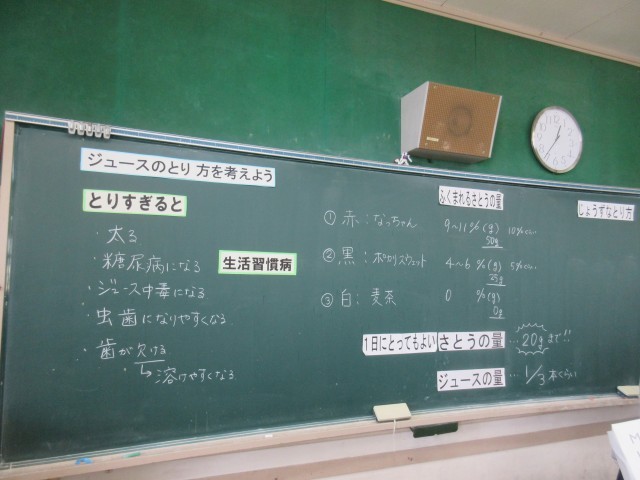 ジュースのとり方を考えよう
とりすぎると
・太る
・糖尿病になる
生活習慣病
・ジュース中毒になる
・虫歯になりやすくなる
・歯が欠ける
↳溶けやすくなる
ふくまれるさとうの量
じょうずなとり方
① 赤：なっちゃん 9~11%(g) 10%くらい
50g
② 黒：ポカリスウェット 4~6%(g) 5%くらい
25g
③ 白：麦茶 0 %(g)
0g
1日にとってもよいさとうの量 …20gまで!!
ジュースの量 … 1/3本くらい